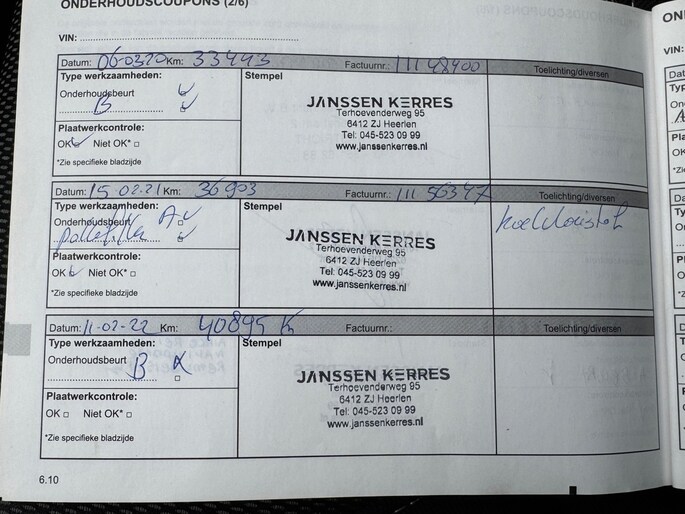 ONDERHOUDSCOUPONS (2/6)
VIN:
Datum: 06-0320 Km: 33443 Factuurnr.: 11148400 Toelichting/diversen
Type werkzaamheden: Stempel
Onderhoudsbeurt
B
JANSSEN KERRES
Terhoevenderweg 95
6412 ZJ Heerlen
Tel: 045-523 09 99
www.janssenkerres.nl
Plaatwerkcontrole:
OK Niet OK*
*Zie specifieke bladzijde
Datum: 15-02-21 Km: 36903 Factuurnr.: 11156347 Toelichting/diversen
Type werkzaamheden: Stempel
Onderhoudsbeurt A
pollenfilter
koelvloeistof
JANSSEN KERRES
Terhoevenderweg 95
6412 ZJ Heerlen
Tel: 045-523 09 99
www.janssenkerres.nl
Plaatwerkcontrole:
OK Niet OK*
*Zie specifieke bladzijde
Datum: 11-02-22 Km: 40895 K Factuurnr.: Toelichting/diversen
Type werkzaamheden: Stempel
Onderhoudsbeurt
B
JANSSEN KERRES
Terhoevenderweg 95
6412 ZJ Heerlen
Tel: 045-523 09 99
www.janssenkerres.nl
Plaatwerkcontrole:
OK Niet OK*
*Zie specifieke bladzijde
6.10
VIN: